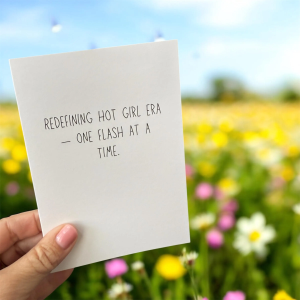 REDEFINING HOT GIRL ERA
— ONE FLASH AT A
TIME.